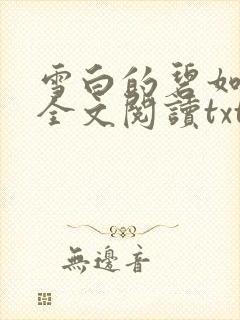 雪白的碧如
全文閱讀txt
無邊音